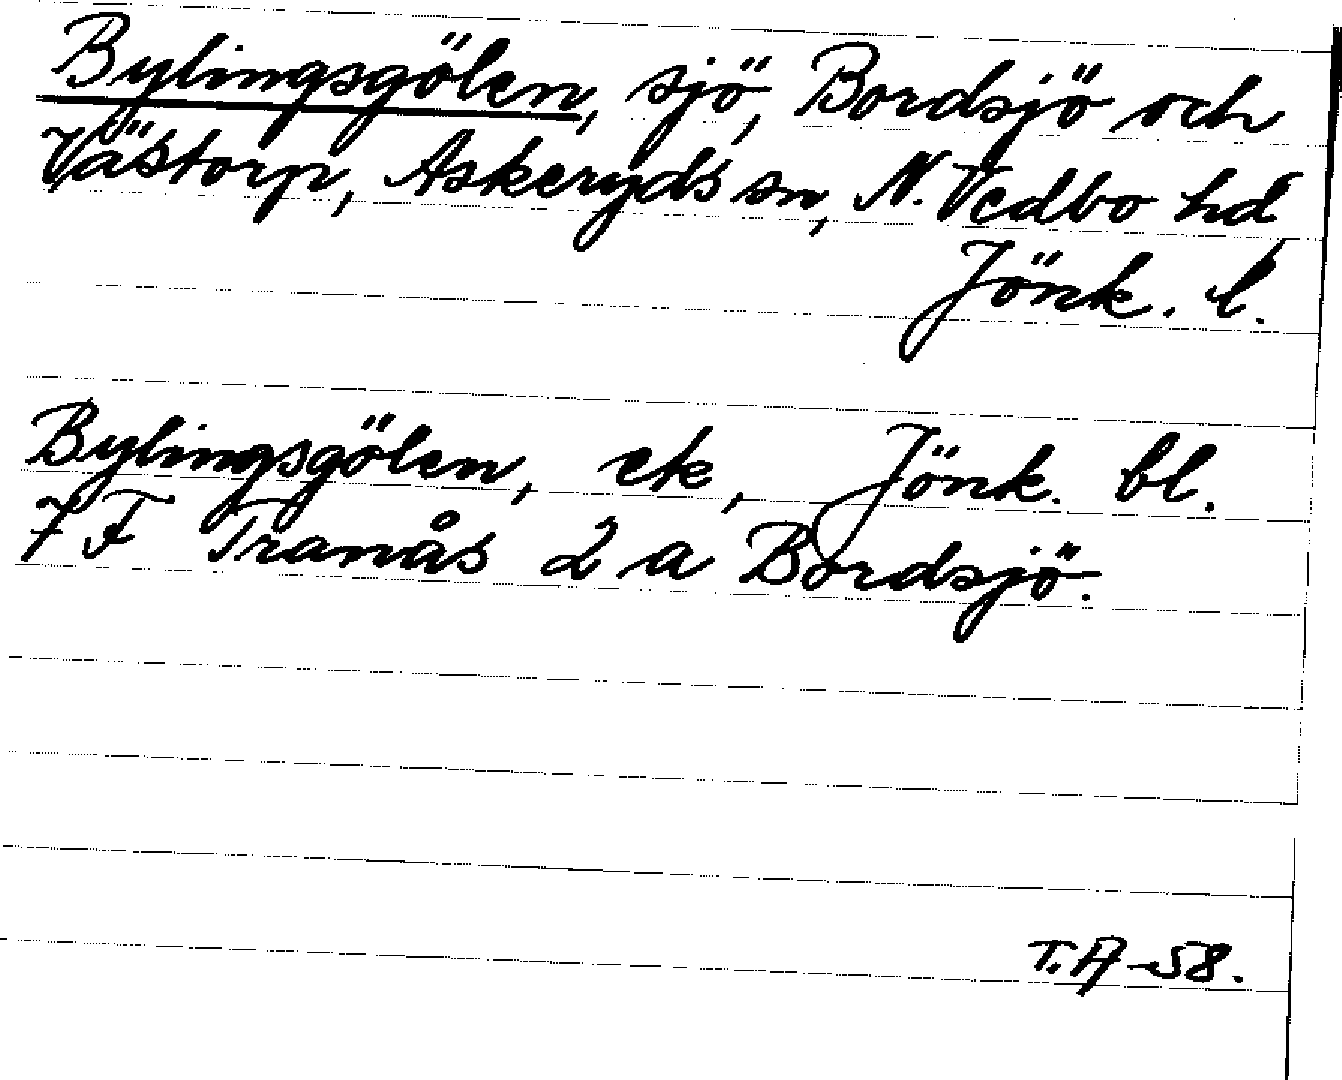 Bylingsgölen, sjö, Bordsjö och
Västorp, Askeryds sn, N. Vedbo hd
Jönk. l.
Bylingsgölen, ek, Jönk. bl.
7 F Tranås 2 a Bordsjö.
T.A -58.